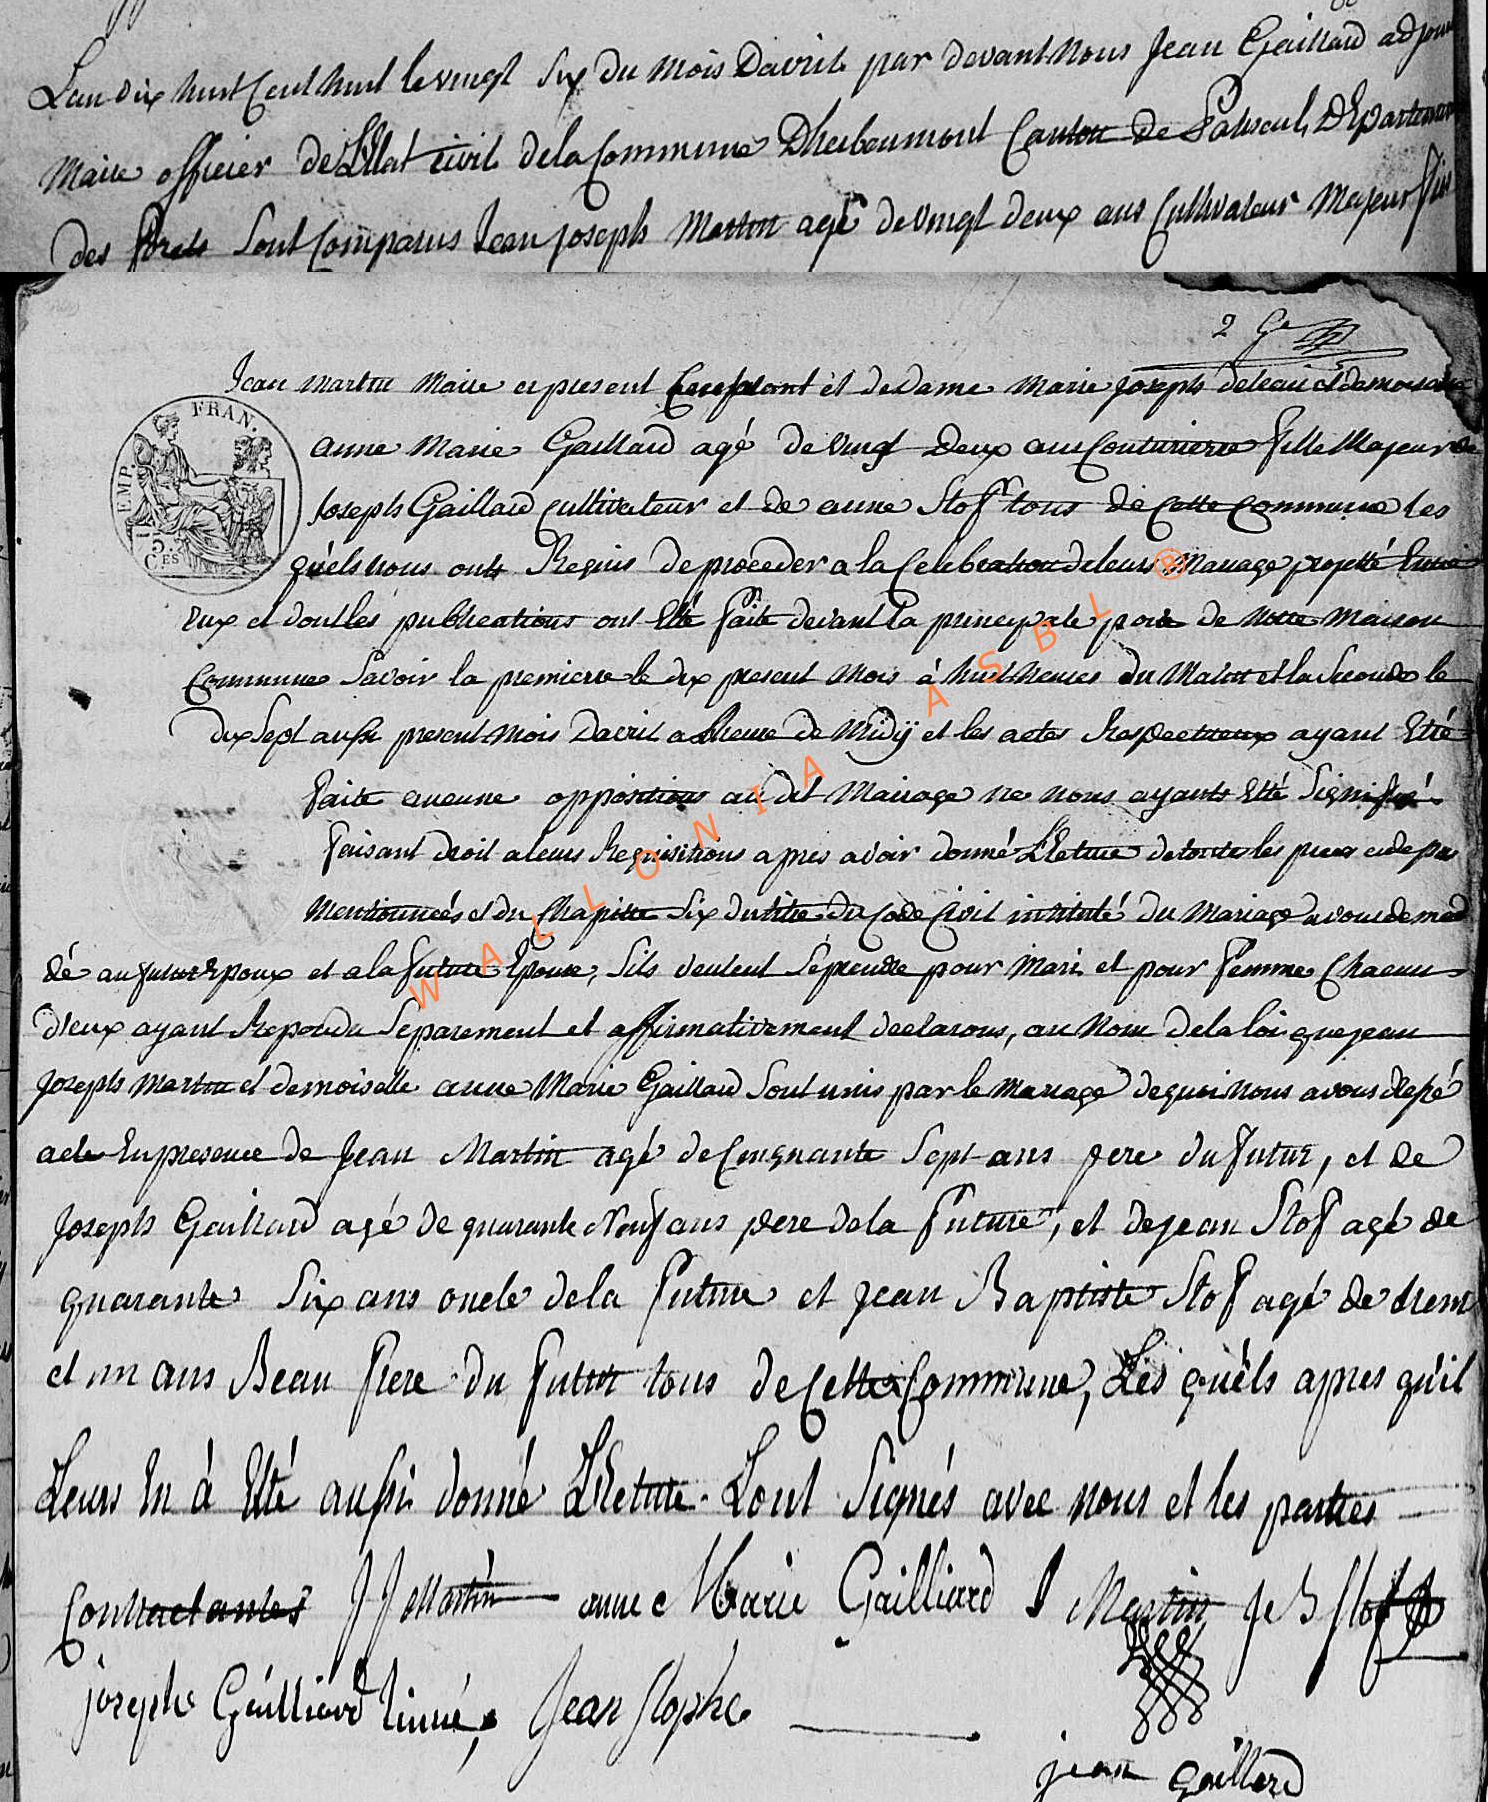 Lan dix huit Cent huit le vingt six du mois Davril par devant Nous Jean Gaillard adjoint
Maire officier de LEtat civil de la Commune Dherbeumont Canton de Paliseul, DEpartement
des forets Sont Comparus Jean joseph Martin agé de vingt deux ans Cultivateur Majeur fils
2 Ge
Jean Martin Maire cy present et de Dame Marie joseph et demoiselle
anne Marie Gaillard agé de vingt Deux ans Couturierre fille Majeur de
Joseph Gaillard cultivateur et de anne Stof tous de Cette Commune les
quèls nous onts Requis de proceder a la Celebration de leurs Mariage projetté Entre
Eux et dont les publications ont Etté faite devant la principale porte de Notre Maison
Commune Savoir la premierre le dix present Mois à huit heures du Matin et la Seconde le
dix Sept aussi present Mois Davril a Lheure de Midÿ et les actes Respectieux ayant Etté
faite aucune oppositions au dit Mariage ne nous ayants Etté Signifiyé
faisant droit a leurs Requisitions apres avoir donné LEcture de toutes les pieces cidepas
Mentionneés et du Chapitre Six du titre du Code Civil intitulé du Mariage avons demad
dé au futur Epoux et a la future Epouse, Sils veulent Seprendre pour Mari et pour femme Chacun
d'eux ayant Repondu Separement et affirmativement declarons, au Nom de la loi que jean
Joseph Martin et demoiselle anne Marie Gaillard Sont unis par le Mariage de quoi nous avons drepsé
acte En presence de Jean Martin agé de Cinquante Sept ans pere du futur, et de
Joseph Gaillard agé de quarante Neuf ans pere de la future, et de jean Stof agé de
quarante Six ans oncle de la future et jean Baptiste Stof agé de trent
et un ans Beau frere du futur tous de Cette Commune, Les quèls apres qu'il
Leurs En à Etté aussi donné LEcture. Lont Signés avec nous et les parties
Contractantes J J Martin anne Marie Gailliard J Martin J B Stof
joseph Gailliard Jean Stophe
jean Gaillard
FRAN.
EMP.
75.
CES
WALLONIA ASBL ®